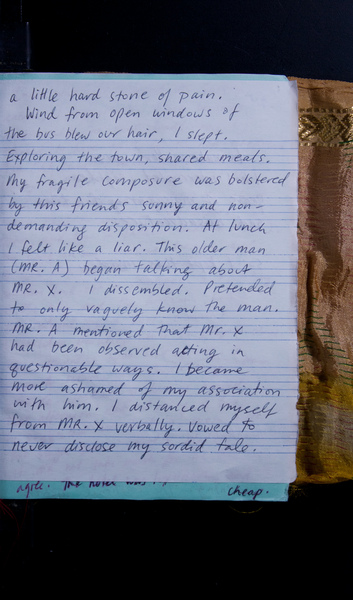 a little hard stone of pain.
Wind from open windows of
the bus blew our hair, I slept.
Exploring the town, shared meals.
My fragile composure was bolstered
by this friends sunny and non-
demanding disposition. At lunch
I felt like a liar. This older man
(MR. A) began talking about
MR. X. I dissembled. Pretended
to only vaguely know the man.
MR. A mentioned that Mr. X
had been observed acting in
questionable ways. I became
more ashamed of my association
with him. I distanced myself
from MR. X verbally. Vowed to
never disclose my sordid tale.
agree. The hotel was
cheap.